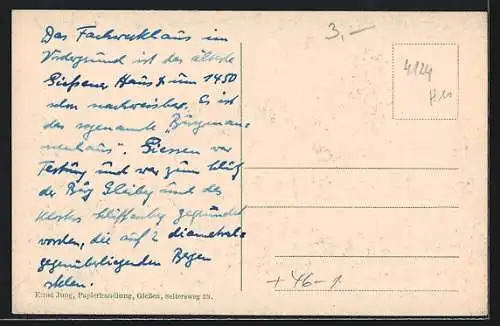 Das Fachwerkhaus im
Vordergrund ist das älteste
Giessener Haus & um 1450
schon nachweisbar. Es ist
das sogenannte "Burgman-
nenhaus". Giessen war
Festung und war zum
der Burg Gleiberg und des
Klosters Schiffenberg gegründet
worden, die auf 2 diametral-
gegenüberliegenden Bergen
Ernst Jung, Papierhandlung, Gießen, Seltersweg 25.
3,—
4124
+ 46-1